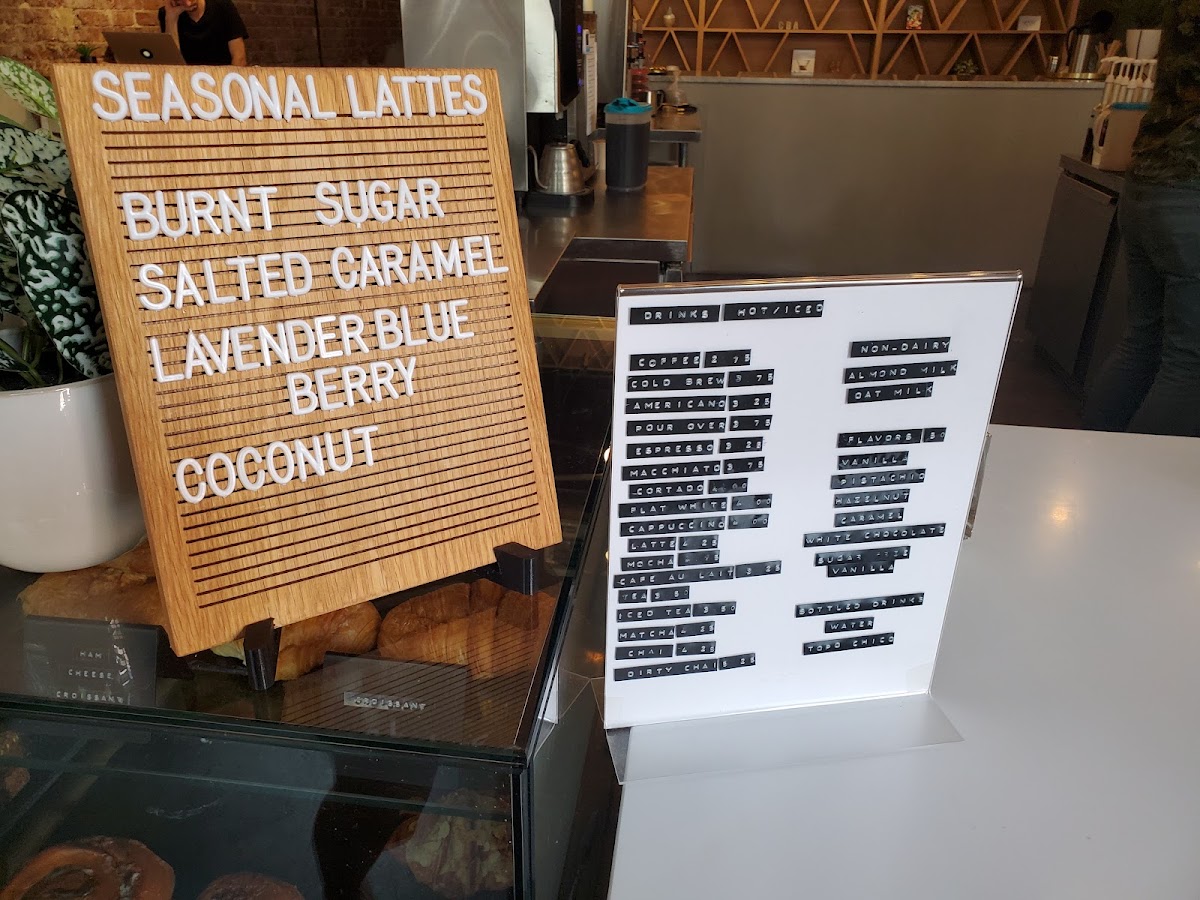 SEASONAL LATTES
BURNT SUGAR
SALTED CARAMEL
LAVENDER BLUE
BERRY
COCONUT
DRINKS HOT/ICED
COFFEE 2 75
COLD BREW 3 75
AMERICANO 3 25
POUR OVER 3 75
ESPRESSO 3 25
MACCHIATO 3 75
CORTADO 4 00
FLAT WHITE 4 00
CAPPUCCINO 4 00
LATTE 4 25
MOCHA 75
CAFE AU LAIT 3 25
TEA 3 50
ICED TEA 3 50
MATCHA 4 25
CHAI 4 25
DIRTY CHAI 5 25
NON-DAIRY
ALMOND MILK
OAT MILK
FLAVORS 50
VANILLA
PISTACHIO
HAZELNUT
CARAMEL
WHITE CHOCOLATE
SUGAR FREE
VANILLA
BOTTLED DRINKS
WATER
TOPO CHICO
HAM
CHEESE
CROISSANT
CROISSANT